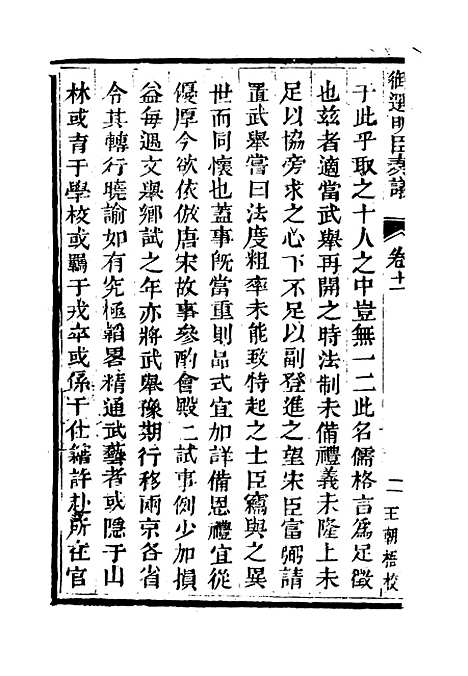 御選明臣奏議
卷十一
二 王朝梧校
于此乎取之十人之中豈無一二此名儒格言爲足徵
也兹者適當武舉再開之時法制未備禮義未隆上未
足以協旁求之心下不足以副登進之望宋臣富弼請
置武舉嘗曰法度粗率未能致特起之士臣竊與之異
世而同懷也蓋事旣當重則品式宜加詳備恩禮宜從
優厚今欲依倣唐宋故事參酌會殿二試事例少加損
益每遇文舉鄉試之年亦將武舉豫期行移兩京各省
令其轉行曉諭如有究極韜畧精通武藝者或隱于山
林或育于學校或羈于戎卒或係于仕籍許赴所在官